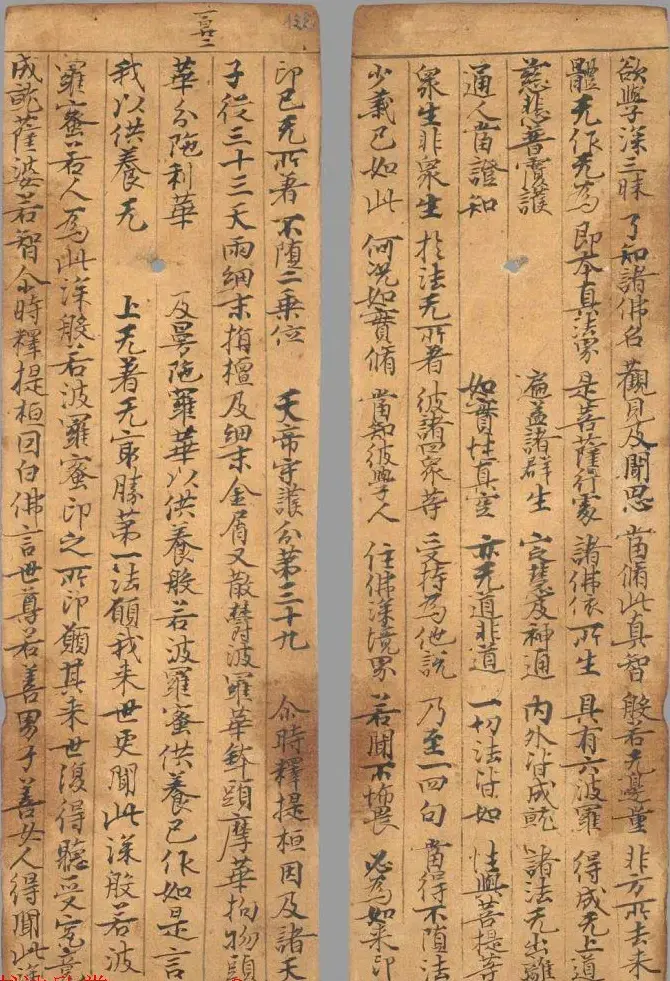 欲學深三昧 了知諸佛名 觀見及聞思 當脩此真智 般若无邊量 非方所去来
體无作无為 即本真法界 是菩薩行處 諸佛依所生 具有六波羅 得成无上道
慈悲普覆護 遍蓋諸群生 定慧及神通 內外皆成就 諸法无出離
通人當證知 如實性真空 亦无道非道 一切法皆如 性與菩提等
衆生非衆生 於法无所著 彼諸四衆等 受持為他說 乃至一四句 當得不墮法
少義已如此 何況如實脩 當知彼學人 住佛深境界 若聞不怖畏 必為如来印
印已无所著 不墮二乗位 天帝守護分第二十九 尒時釋提桓因及諸天
子従三十三天雨細末栴檀及細末金屑又散欝波羅華鉢頭摩華拘物頭
華分陁利華 及曼陁羅華以供養般若波羅蜜供養已作如是言
我以供養无 上无著无㝡勝第一法願我来世更聞此深般若波
羅蜜若人為此深般若波羅蜜印之所印願其来世復得聽受究竟
成就薩婆若智尒時釋提桓因白佛言世尊若善男子善女人得聞此